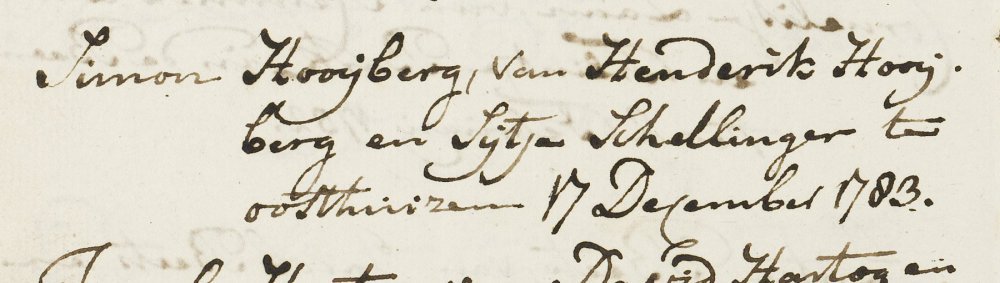 Simon Hooijberg, van Henderik Hooij.
berg en Sijtje Schellinger te
oosthuizen 17 December 1783.
David Hartog en